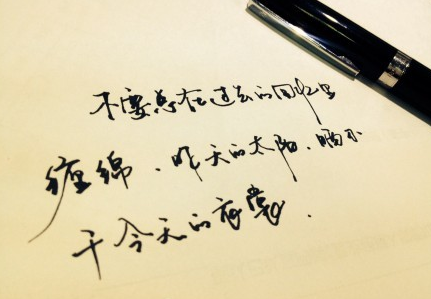 不要总在过去的回忆里
缠绵、昨天的太阳、晒不
干今天的衣裳.